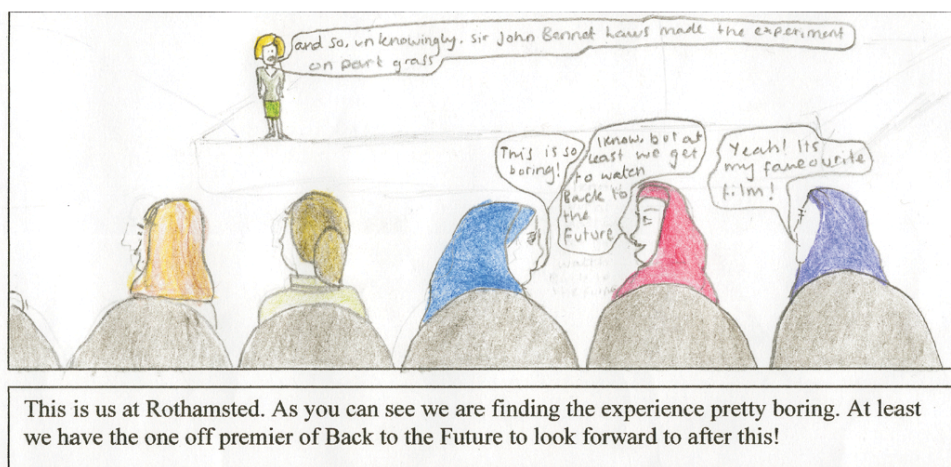 and so, unknowingly, sir John Bennet Laws made the experiment
on park grass
This is so
boring!
I know, but at
least we get
to watch
Back to
the
Future
Yeah! Its
my faveourite
film!
This is us at Rothamsted. As you can see we are finding the experience pretty boring. At least
we have the one off premier of Back to the Future to look forward to after this!